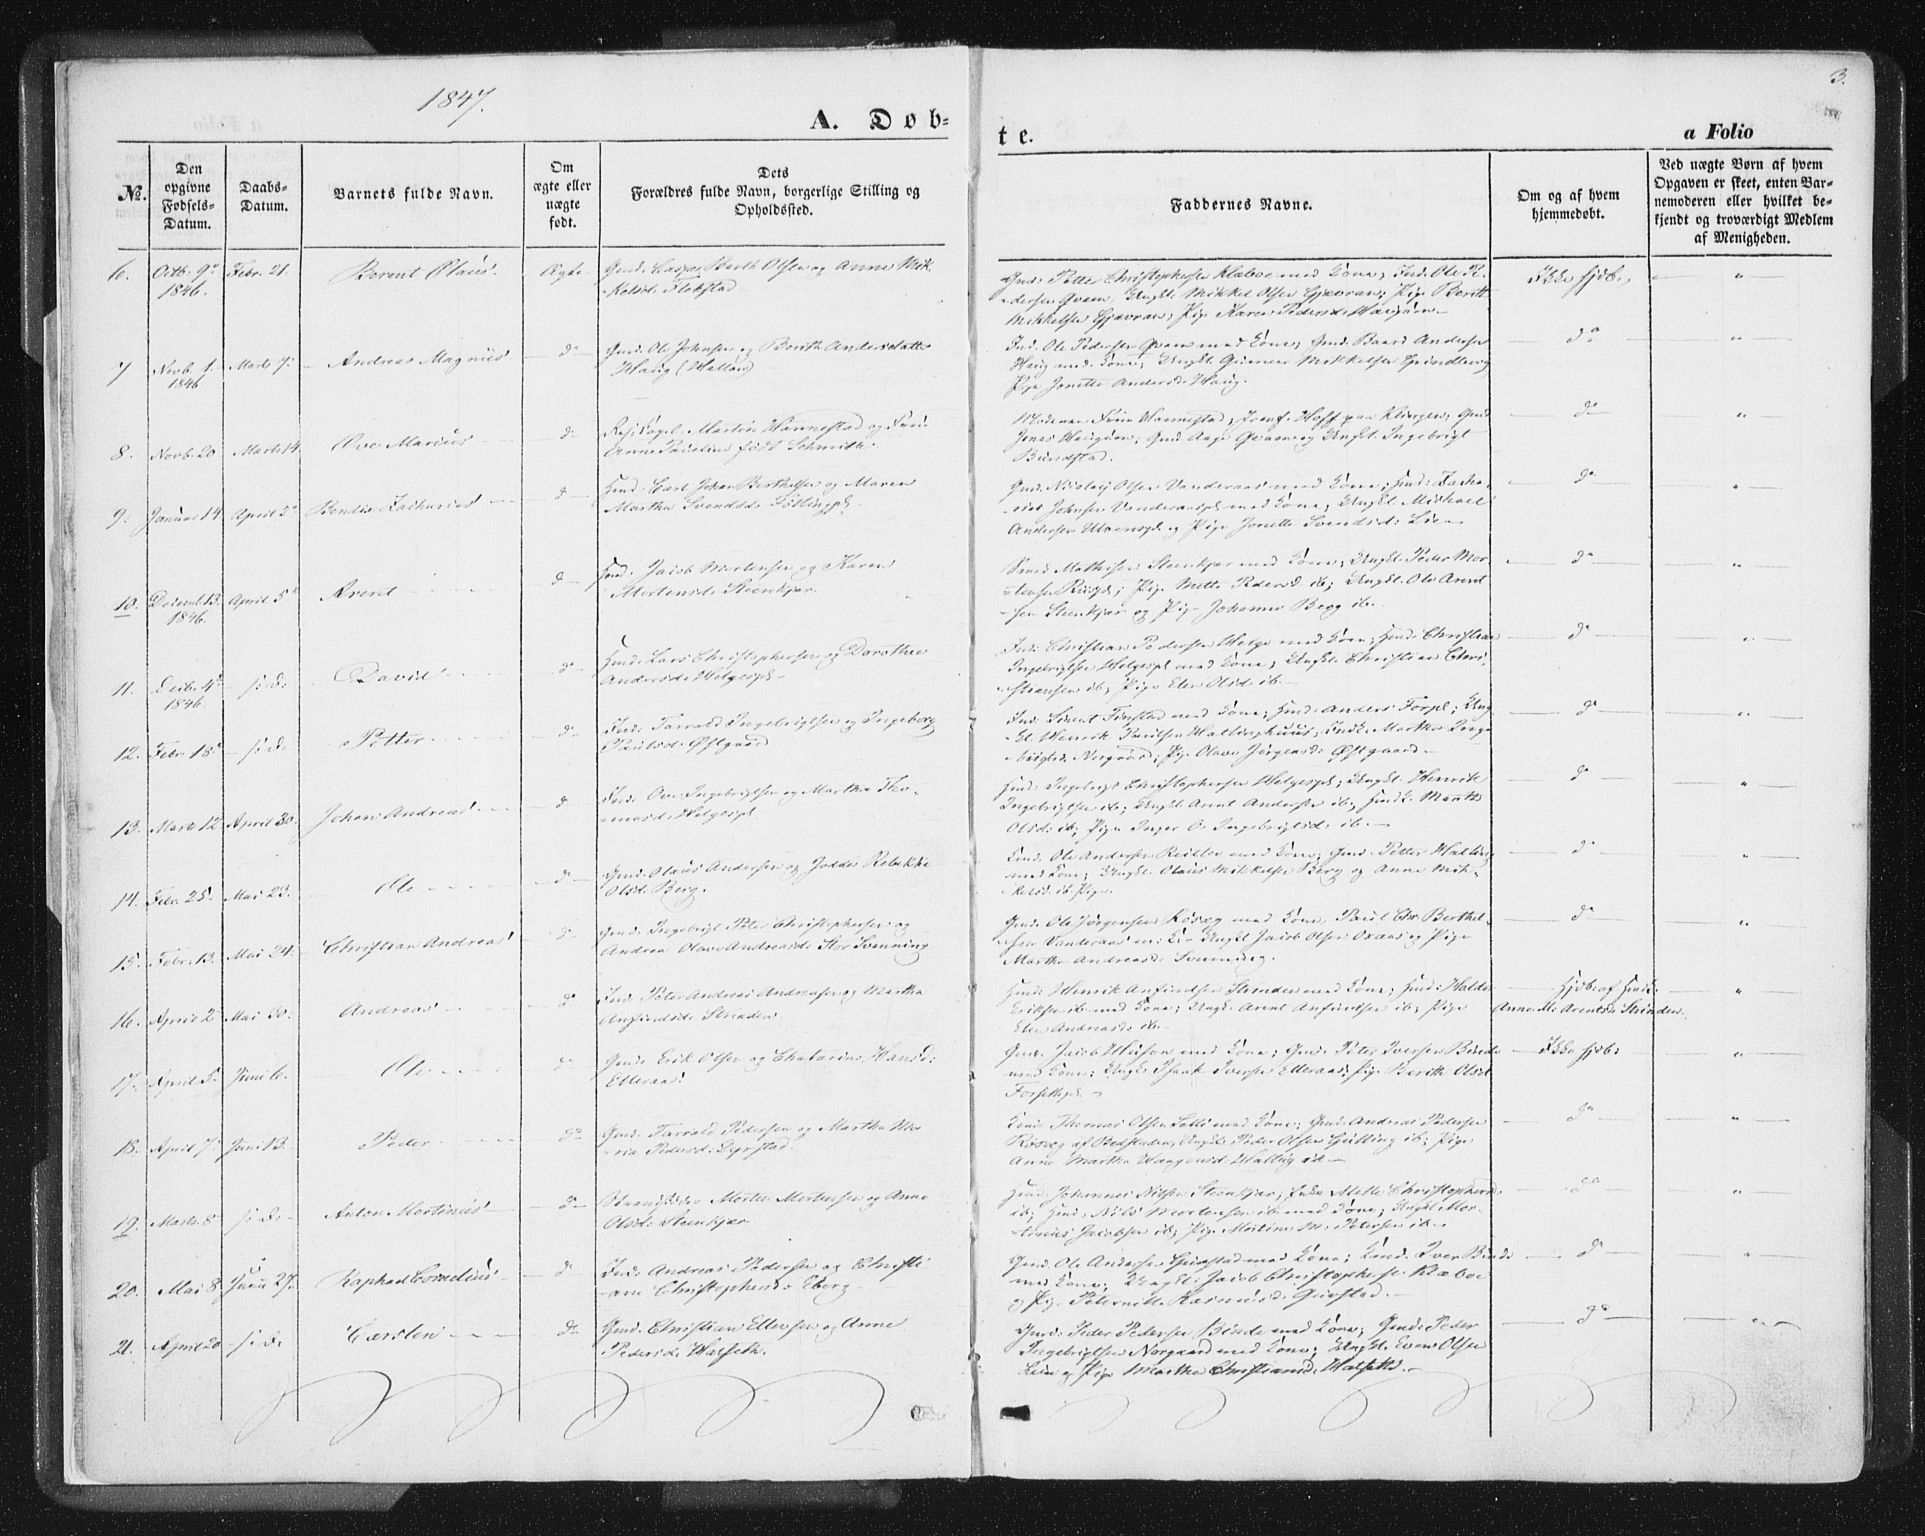 1847.
3.
A. Døb-
te.
a Folio
No.
Den opgivne Fødsels-Datum.
Daabs-Datum.
Barnets fulde Navn.
Om ægte eller uægte født.
Dets Forældres fulde Navn, borgerlige Stilling og Opholdssted.
Faddernes Navne.
Om og af hvem hjemmedøbt.
Ved uægte Børn af hvem Opgaven er skeet, enten Barnemoderen eller hvilket bekjendt og troværdigt Medlem af Menigheden.
6. Octb. 9de 1846. Febr. 21. Berent Olaus. Ægte
Gmd. Casper Berth Olsen og Anne Mik-
kelsd. Flekstad
Gmd. Petter Christophersen Klæboe med Kone; Ind. Ole Pe-
dersen Qvam, Ungkl. Mikkel Olsen Gjævran; Pige Berith
Mikkelsen Gjævran; Pige Karen Pedersd. Haugan
Ikke hjdb.
7 Novb. 1. 1846. Marts 7. Andreas Magnus do
Gmd. Ole Johnsen og Berith Andersdatter
Haug (Hallan)
Ind. Ole Pedersen Qvam med Kone; Gmd. Baard Andersen
Haug med Kone; Ungkl. Gunner Mikkelsen Grindberg
Pige Jonetta Andersd. Haug.
do
8. Novb. 20 Marts 14 Ove Marius do
Martin Hannestad og Fru
Anne Pauline født Schmith.
Moderen Fru Hannestad; Hoff paa Klingen; Gmd.
Jonas Haugan; Gmd. Aage Qvam og Ungkl. Ingebrigt
Bundstad.
do
9. Januar 14 April 2 Bendix Zacharias do
Hmd. Carl Johan Berthelsen og Maren
Martha Svendsd.
Gmd. Nicolaij Olsen Vanderaas med Kone; Hmd. Zacha-
rias Johnsen Vanderaaspl. med Kone; Ungkl. Michael
Andersen og Pige Jonetta Svendsd. Lie
do
10. Decemb. 13. 1846. April 5 Arent do
Hmd. Jacob Mortensen og Karen
Mortensd. Steenkjær.
Mathisen Steenkjær med Kone; Ungkl. Peder Mor-
tensen; Pige Mette Pedersd. ib; Ungkl. Ole Arent-
sen Steenkjær og Pige Johanna Begg ib.
do
11. Decb. 4de 1846. s: D: David do
Hmd. Lars Christophersen og Dorothea
Andersd. Helgespl.
Ind. Christian Pedersen Helge med Kone; Hmd. Christian
Ingebrigtsen Helgespl. med Kone; Ungkl. Christian Chri-
stiansen ib; Pige Elen Olsd. ib.
do
12. Febr. 18 s: D: Petter do
Ind. Tarrald Ingebrigtsen og Ingeborg
Paulsd. Østgaard
Ind. Finstad med Kone; Hmd. Anders Forpl.; Ung-
kl. Henrik Paulsen; Enke Martha Inge-
brigtsd. Norgaard; Pige Olava Jørgensd. Østgaard
do
13. Marts 12 April 30. Johan Andreas do
Ind. Ove Ingebrigtsen og Martha Tho-
masd. Helgespl.
Hmd. Ingebrigt Christophersen Helgespl.; Ungkl. Henrik
Ingebrigtsen ib; Ungkl. Arent Andersen ib; Hmdk. Marith
Olsd. ib; Pige Inger O. Ingebrigtsd. ib.
do
14. Febr. 25. Mai 23. Ole do
Gmd. Olaus Andersen og Rebekka
Olsd. Berg.
Ole Andersen med Kone; Gmd. Petter Halling
med Kone; Ungkl. Olaus Mikkelsen Berg og Anne Mik-
kelsd. ib Pige.
do
15. Febr. 13. Mai 24. Christian Andreas do
Gmd. Ingebrigt Peter Christophersen og
Andrea Olava Andreasd. Stor Svenning
Gmd. Ole Jørgensen Røseg med Kone, Paul Chr. Berthel-
sen Vanderaas m: K: Ungkl. Jacob Olsen Oxaas og Pige
Martha Andreasd.
do
16. April 2 Mai 30. Andreas do
Ind. Peter Andreas Andreasen og Martha
Anfindsd. Strinden
Hmd. Henrik Anfindsen Strinden med Kone; Hmd. Haldor
Eriksen ib med Kone; Ungkl. Arent Anfindsen ib; Pige
Elen Andreasd. ib
Hjdb: af Hmdk:
Anne M: Arentsd: Strinden.
17. April 5. Juni 6. Ole do
Gmd. Erik Olsen og Chatarina Hansd:
Elleraas
Gmd. Jacob med Kone; Gmd. Peter Iversen Binde
med Kone; Ungkl. Isaak Iversen Elleraas; Pige Berith Olsd.
Ikke hjdb:
18. April 7. Juni 13. Peder do
Gmd. Tarrald Pedersen og Martha Ma-
ria Pedersd. Dyrstad.
Thomas Olsen med Kone; Gmd. Andreas Pedersen
Røseg; Ungkl. Peder Olsen ib; Pige
Anne Martha Haagensd. Halling
do
19. Marts 8 s: D: Anton Martinus do
Strandsidder Morten Mortensen og Anne
Olsd. Steenkjær
Hmd. Johannes Nilsen Steenkjær; Enke Mette Christophersd.
ib; Hmd. Nils Mortensen ib med Kone; Ungkl. Mor-
tinus Jacobsen ib; Pige Martine M. Petersen ib.
do
20. Mai 8 Juni 27. Raphael Cornelius do
Ind. Andreas Pedersen og Christi-
ane Christophersd. Eberg
Gmd. Ole Andersen Guustad med Kone; Iver Binde
med Kone; Ungkl. Jacob Christophersen Klæboe
og Pige Peternille Rasmusd. Guustad.
do
21. April 20 s: D: Carsten do
Gmd. Christian Ellevsen og Anne
Pedersd. Halseth.
Gmd. Peder Pedersen Binde med Kone; Gmd. Peder
Ingebrigtsen Norgaard med Kone; Ungkl. Even Olsen
og Pige Martha Christiansd. Halseth
do